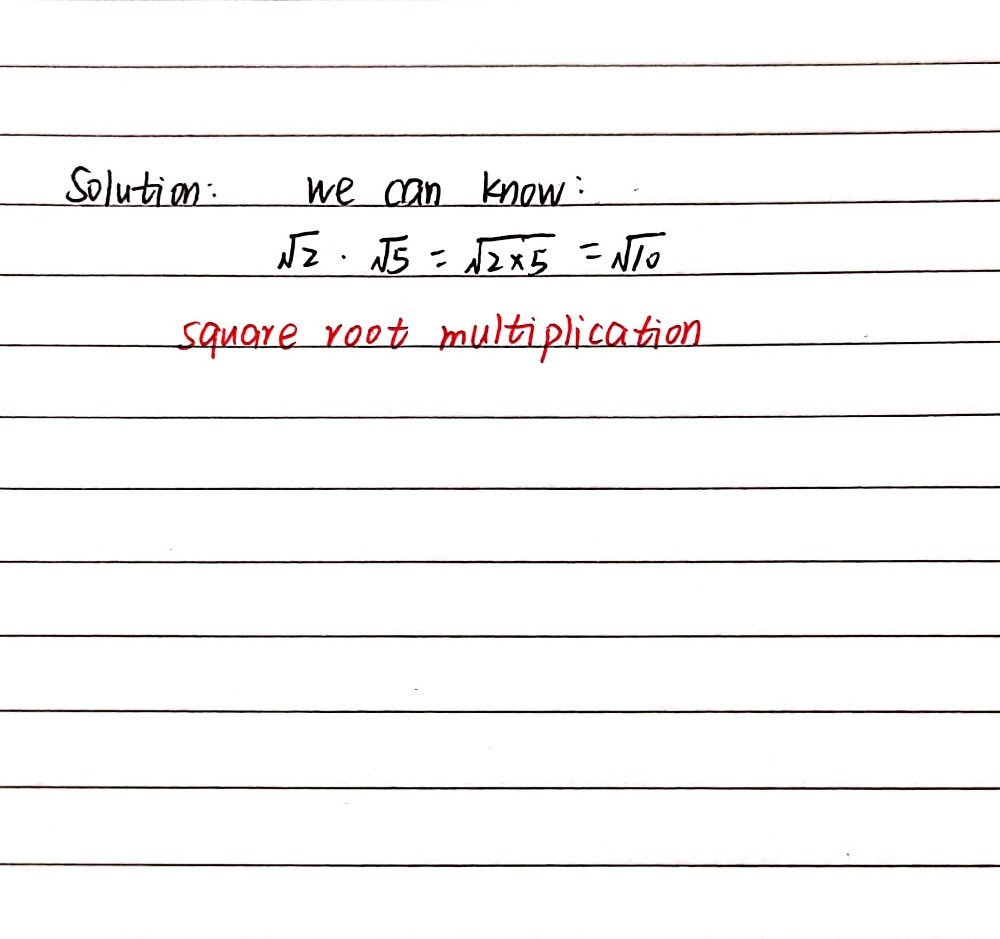 Solution: we can know:
√2 · √5 = √2×5 = √10
square root multiplication